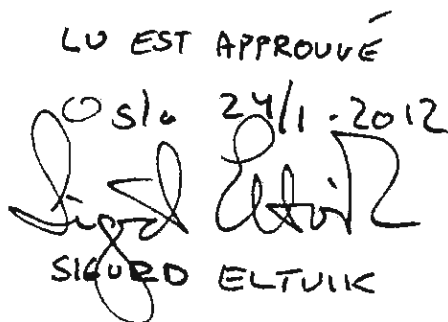 LU EST APPROUVÉ
Oslo 24/1.2012
Sigurd Eltvik
SIGURD ELTVIK